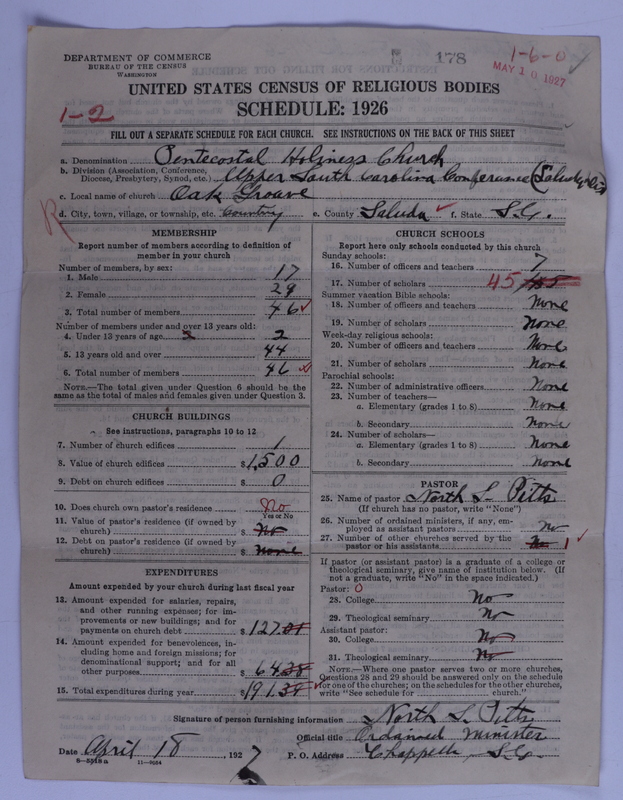 178
1-6-0
MAY 10 1927
DEPARTMENT OF COMMERCE
BUREAU OF THE CENSUS
WASHINGTON
UNITED STATES CENSUS OF RELIGIOUS BODIES
1-2
SCHEDULE: 1926
FILL OUT A SEPARATE SCHEDULE FOR EACH CHURCH. SEE INSTRUCTIONS ON THE BACK OF THIS SHEET
a. Denomination Pentecostal Holiness Church
b. Division (Association, Conference, Diocese, Presbytery, Synod, etc.) Upper South Carolina Conference
c. Local name of church Oak Groave
d. City, town, village, or township, etc. Country e. County Saluda f. State S.C.
R
MEMBERSHIP
Report number of members according to definition of
member in your church
Number of members, by sex:
1. Male 17
2. Female 29
3. Total number of members 46
Number of members under and over 13 years old:
4. Under 13 years of age 2
5. 13 years old and over 44
6. Total number of members 46
NOTE.—The total given under Question 6 should be
same as the total of males and females given under Question 3.
CHURCH BUILDINGS
See instructions, paragraphs 10 to 12
7. Number of church edifices 1
8. Value of church edifices $1,500
9. Debt on church edifices $ 0
10. Does church own pastor's residence No
Yes or No
11. Value of pastor's residence (if owned by
church) $ No
12. Debt on pastor's residence (if owned by
church) $ none
EXPENDITURES
Amount expended by your church during last fiscal year
13. Amount expended for salaries, repairs,
and other running expense; for im-
provements or new buildings; and for
payments on church debt $127.01
14. Amount expended for benevolences, in-
cluding home and foreign missions; for
denominational support; and for all
other purposes $ 64.38
15. Total expenditures during year $191.39
CHURCH SCHOOLS
Report here only schools conducted by this church
Sunday schools:
16. Number of officers and teachers 7
17. Number of scholars 45
Summer vacation Bible schools:
18. Number of officers and teachers None
19. Number of scholars None
Week-day religious schools:
20. Number of officers and teachers None
21. Number of scholars None
Parochial schools:
22. Number of administrative officers None
23. Number of teachers—
a. Elementary (grades 1 to 8) None
b. Secondary None
24. Number of scholars—
a. Elementary (grades 1 to 8) None
b. Secondary None
PASTOR
25. Name of pastor North L. Pitts
(If church has no pastor, write "None")
26. Number of ordained ministers, if any, em-
ployed as assistant pastors No
27. Number of other churches served by the
pastor or his assistants 1
If pastor (or assistant pastor) is a graduate of a college or
theological seminary, give name of institution below. (If
not a graduate, write "No" in the space indicated.)
Pastor: 0
28. College No
29. Theological seminary No
Assistant pastor:
30. College No
31. Theological seminary No
NOTE.—Where one pastor serves two or more churches,
Questions 28 and 29 should be answered only on the schedule
for one of the churches; on the schedules for the other churches,
write "See schedule for church."
Signature of person furnishing information North L. Pitts
Official title Ordained Minister
Date April 18 , 1927 P. O. Address Chappells, S.C.
8-5518a 11-9054